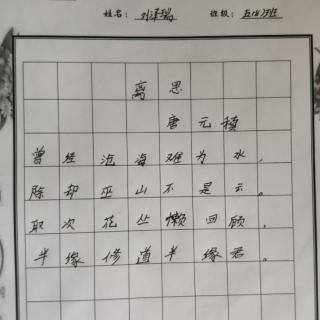 姓名：刘泽瑞 班级：五(8)班
离思
唐 元稹
曾经沧海难为水，
除却巫山不是云。
取次花丛懒回顾，
半缘修道半缘君。